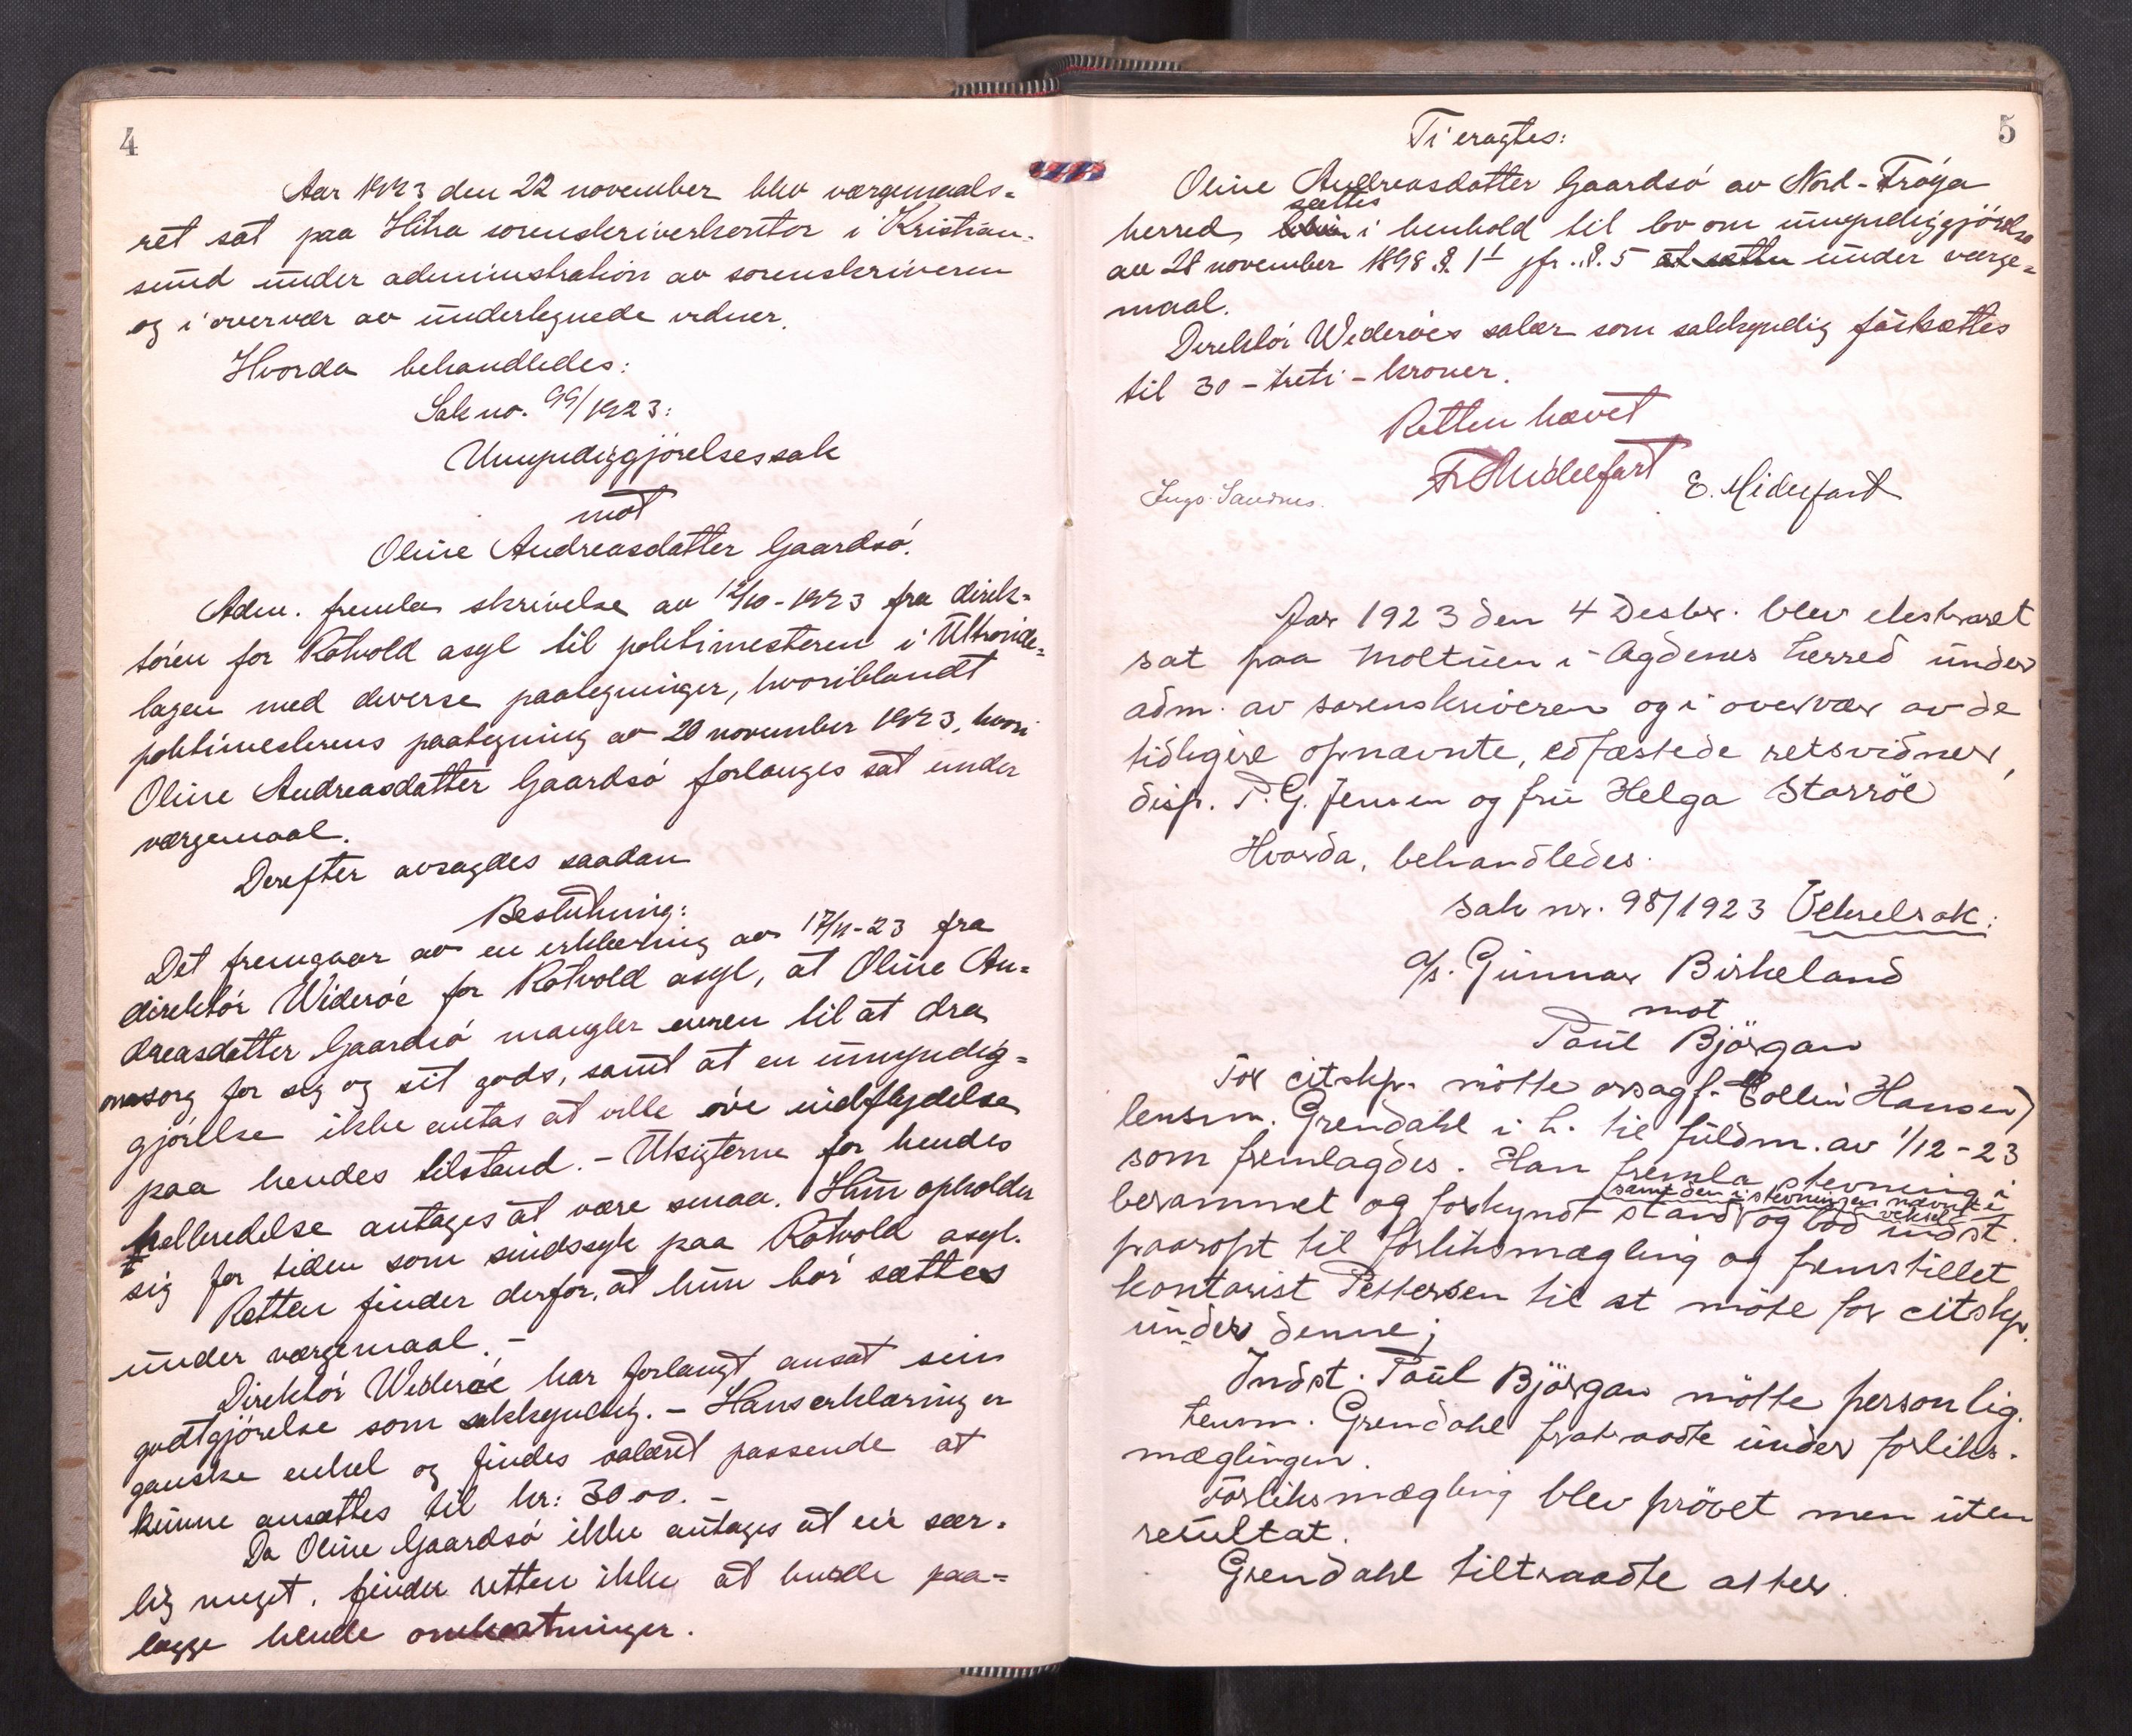 4
Aar 1923 den 22 november blev værgemaals-
ret sat paa Hitra sorenskriverkontor i Kristian-
sund under administration av sorenskriveren
og i overvær av undertegnede vidner.
Hvorda behandledes:
Sak no. 99/1923:
Umyndiggjörelsessak
mot
Oline Andreasdatter Gaardsö.
Adm. fremla skrivelse av 12/10-1923 fra direk-
tören for Rotvold asyl til politimesteren i Uttrönde-
lagen med diverse paategninger, hvoriblandt
politimesterens paategning av 20 november 1923, hvori
Oline Andreasdatter Gaardsö forlanges sat under
værgemaal.
Derefter avsagdes saadan
Beslutning:
Det fremgaar av en erklæring av 17/11-23 fra
direktör Wideröe for Rotvold asyl, at Oline An-
dreasdatter Gaardsö mangler evnen til at dra
omsorg for seg og sit gods, samt at en umyndig-
gjörelse ikke antas at ville öve indflydelse
paa hendes tilstand. - Utsigterne for hendes
helbredelse antages at være smaa. Hun opholder
sig for tiden som sindssyk paa Rotvold asyl.
Retten finder derfor, at hun bör sættes
under værgemaal. -
Direktör Wideröe har forlangt ansat sin
godtgjörelse som sakkyndig. - Hans erklæring er
ganske enkel og findes salæret passende at
kunne ansættes til kr: 30.00. -
Da Oline Gaardsö ikke antages at eie sær-
lig meget, finder retten ikke at burde paa-
lægge hende omkostninger.
5
Ti eragtes:
Oline Andreasdatter Gaardsö av Nord-Fröya
herred sættes i henhold til lov om umyndiggjörelse
av 28 november 1898 §. 1 jfr. §. 5 at sættes under værge-
maal.
Direktör Wideröes salær som sakkyndig fastsættes
til 30 - treti - kroner.
Retten hævet
Fr Midelfart E. Midelfart
Inga Sandnes.
Aar 1923 den 4 Desbr. blev ekstraret
sat paa Moltuen i Agdenes herred under
adm. av sorenskriveren og i overvær av de
tidligere opnævnte, edfæstede retsvidner,
disp. P. G. Jensen og fru Helga Storröe
Hvorda, behandledes.
Sak nr. 98/1923 Vekselsak:
a/s. Gunnar Birkeland
mot
Paul Björgan
For citskp. mötte orsagf. Collin Hansen)
lensm. Grendahl i h. til fuldm. av 1/12-23
som fremlagdes. Han fremla stevning i
berammet og forkyndt stand samt den i stevningen nævnte veksel og lod indst.
paaropt til forliksmægling og fremstillet
kontorist Pettersen til at möte for citskp.
under denne;
Indst. Paul Björgan mötte personlig.
Lensm. Grendahl fratraadte under forliks-
mæglingen.
Forliksmægling blev prövet men uten
resultat.
Grendahl tiltraadte atter.